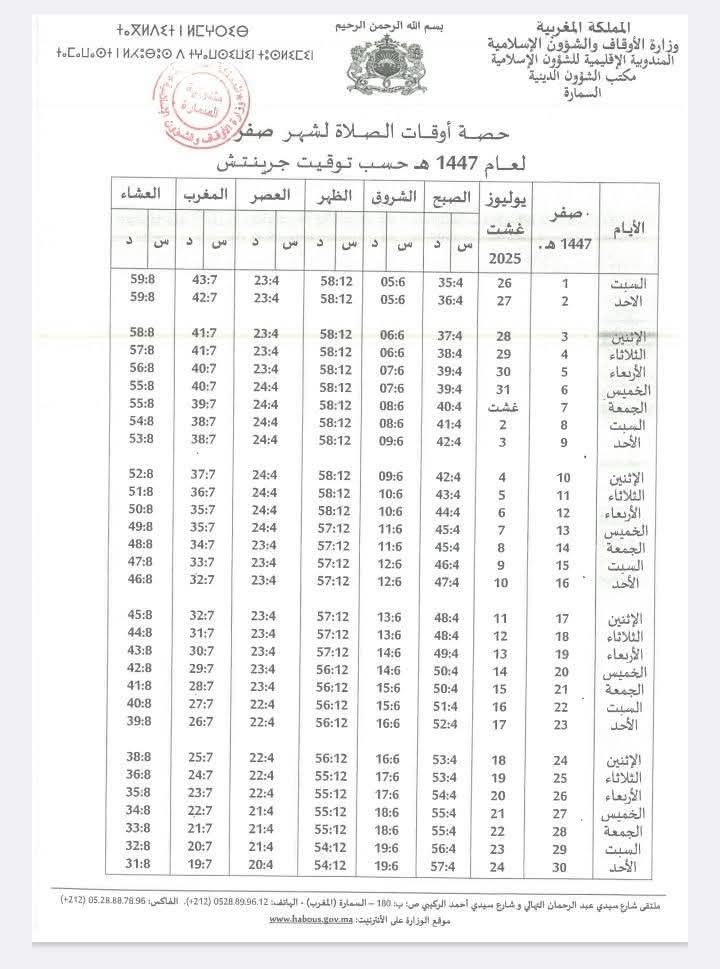 ⵜⴰⴳⵍⴷⵉⵜ ⵏ ⵍⵎⵖⵔⵉⴱ
بسم الله الرحمن الرحيم
المملكة المغربية
وزارة الأوقاف والشؤون الإسلامية
المندوبية الإقليمية للشؤون الإسلامية
مكتب الشؤون الدينية
السمارة
حصة أوقات الصلاة لشهر صفر
لعام 1447 هـ حسب توقيت جرينتش
الأيام صفر 1447 هـ. يوليوز غشت 2025 الصبح الشروق الظهر العصر المغرب العشاء
س د س د س د س د س د س د
السبت 1 26 35:4 05:6 58:12 23:4 43:7 59:8
الاحد 2 27 36:4 05:6 58:12 23:4 42:7 59:8
الإثنين 3 28 37:4 06:6 58:12 23:4 41:7 58:8
الثلاثاء 4 29 38:4 06:6 58:12 23:4 41:7 57:8
الأربعاء 5 30 39:4 07:6 58:12 23:4 40:7 56:8
الخميس 6 31 39:4 07:6 58:12 24:4 40:7 55:8
الجمعة 7 غشت 40:4 08:6 58:12 24:4 39:7 55:8
السبت 8 2 41:4 08:6 58:12 24:4 38:7 54:8
الأحد 9 3 42:4 09:6 58:12 24:4 38:7 53:8
الإثنين 10 4 42:4 09:6 58:12 24:4 37:7 52:8
الثلاثاء 11 5 43:4 10:6 58:12 24:4 36:7 51:8
الأربعاء 12 6 44:4 10:6 58:12 24:4 35:7 50:8
الخميس 13 7 45:4 11:6 57:12 24:4 35:7 49:8
الجمعة 14 8 45:4 11:6 57:12 23:4 34:7 48:8
السبت 15 9 46:4 12:6 57:12 23:4 33:7 47:8
الأحد 16 10 47:4 12:6 57:12 23:4 32:7 46:8
الإثنين 17 11 48:4 13:6 57:12 23:4 32:7 45:8
الثلاثاء 18 12 48:4 13:6 57:12 23:4 31:7 44:8
الأربعاء 19 13 49:4 14:6 57:12 23:4 30:7 43:8
الخميس 20 14 50:4 14:6 56:12 23:4 29:7 42:8
الجمعة 21 15 50:4 15:6 56:12 23:4 28:7 41:8
السبت 22 16 51:4 15:6 56:12 22:4 27:7 40:8
الأحد 23 17 52:4 16:6 56:12 22:4 26:7 39:8
الإثنين 24 18 53:4 16:6 56:12 22:4 25:7 38:8
الثلاثاء 25 19 53:4 17:6 55:12 22:4 24:7 36:8
الأربعاء 26 20 54:4 17:6 55:12 22:4 23:7 35:8
الخميس 27 21 55:4 18:6 55:12 21:4 22:7 34:8
الجمعة 28 22 55:4 18:6 55:12 21:4 21:7 33:8
السبت 29 23 56:4 19:6 54:12 21:4 20:7 32:8
الأحد 30 24 57:4 19:6 54:12 20:4 19:7 31:8
ملتقى شارع سيدي عبد الرحمان و شارع سيدي أحمد الركيبي ص: ب: 180 – السمارة (المغرب) - الهاتف: 0528.89.96.12 (212+). الفاكس: 05.28.88.78.96 (212+)
موقع الوزارة على الأنترنيت: www.habous.gov.ma